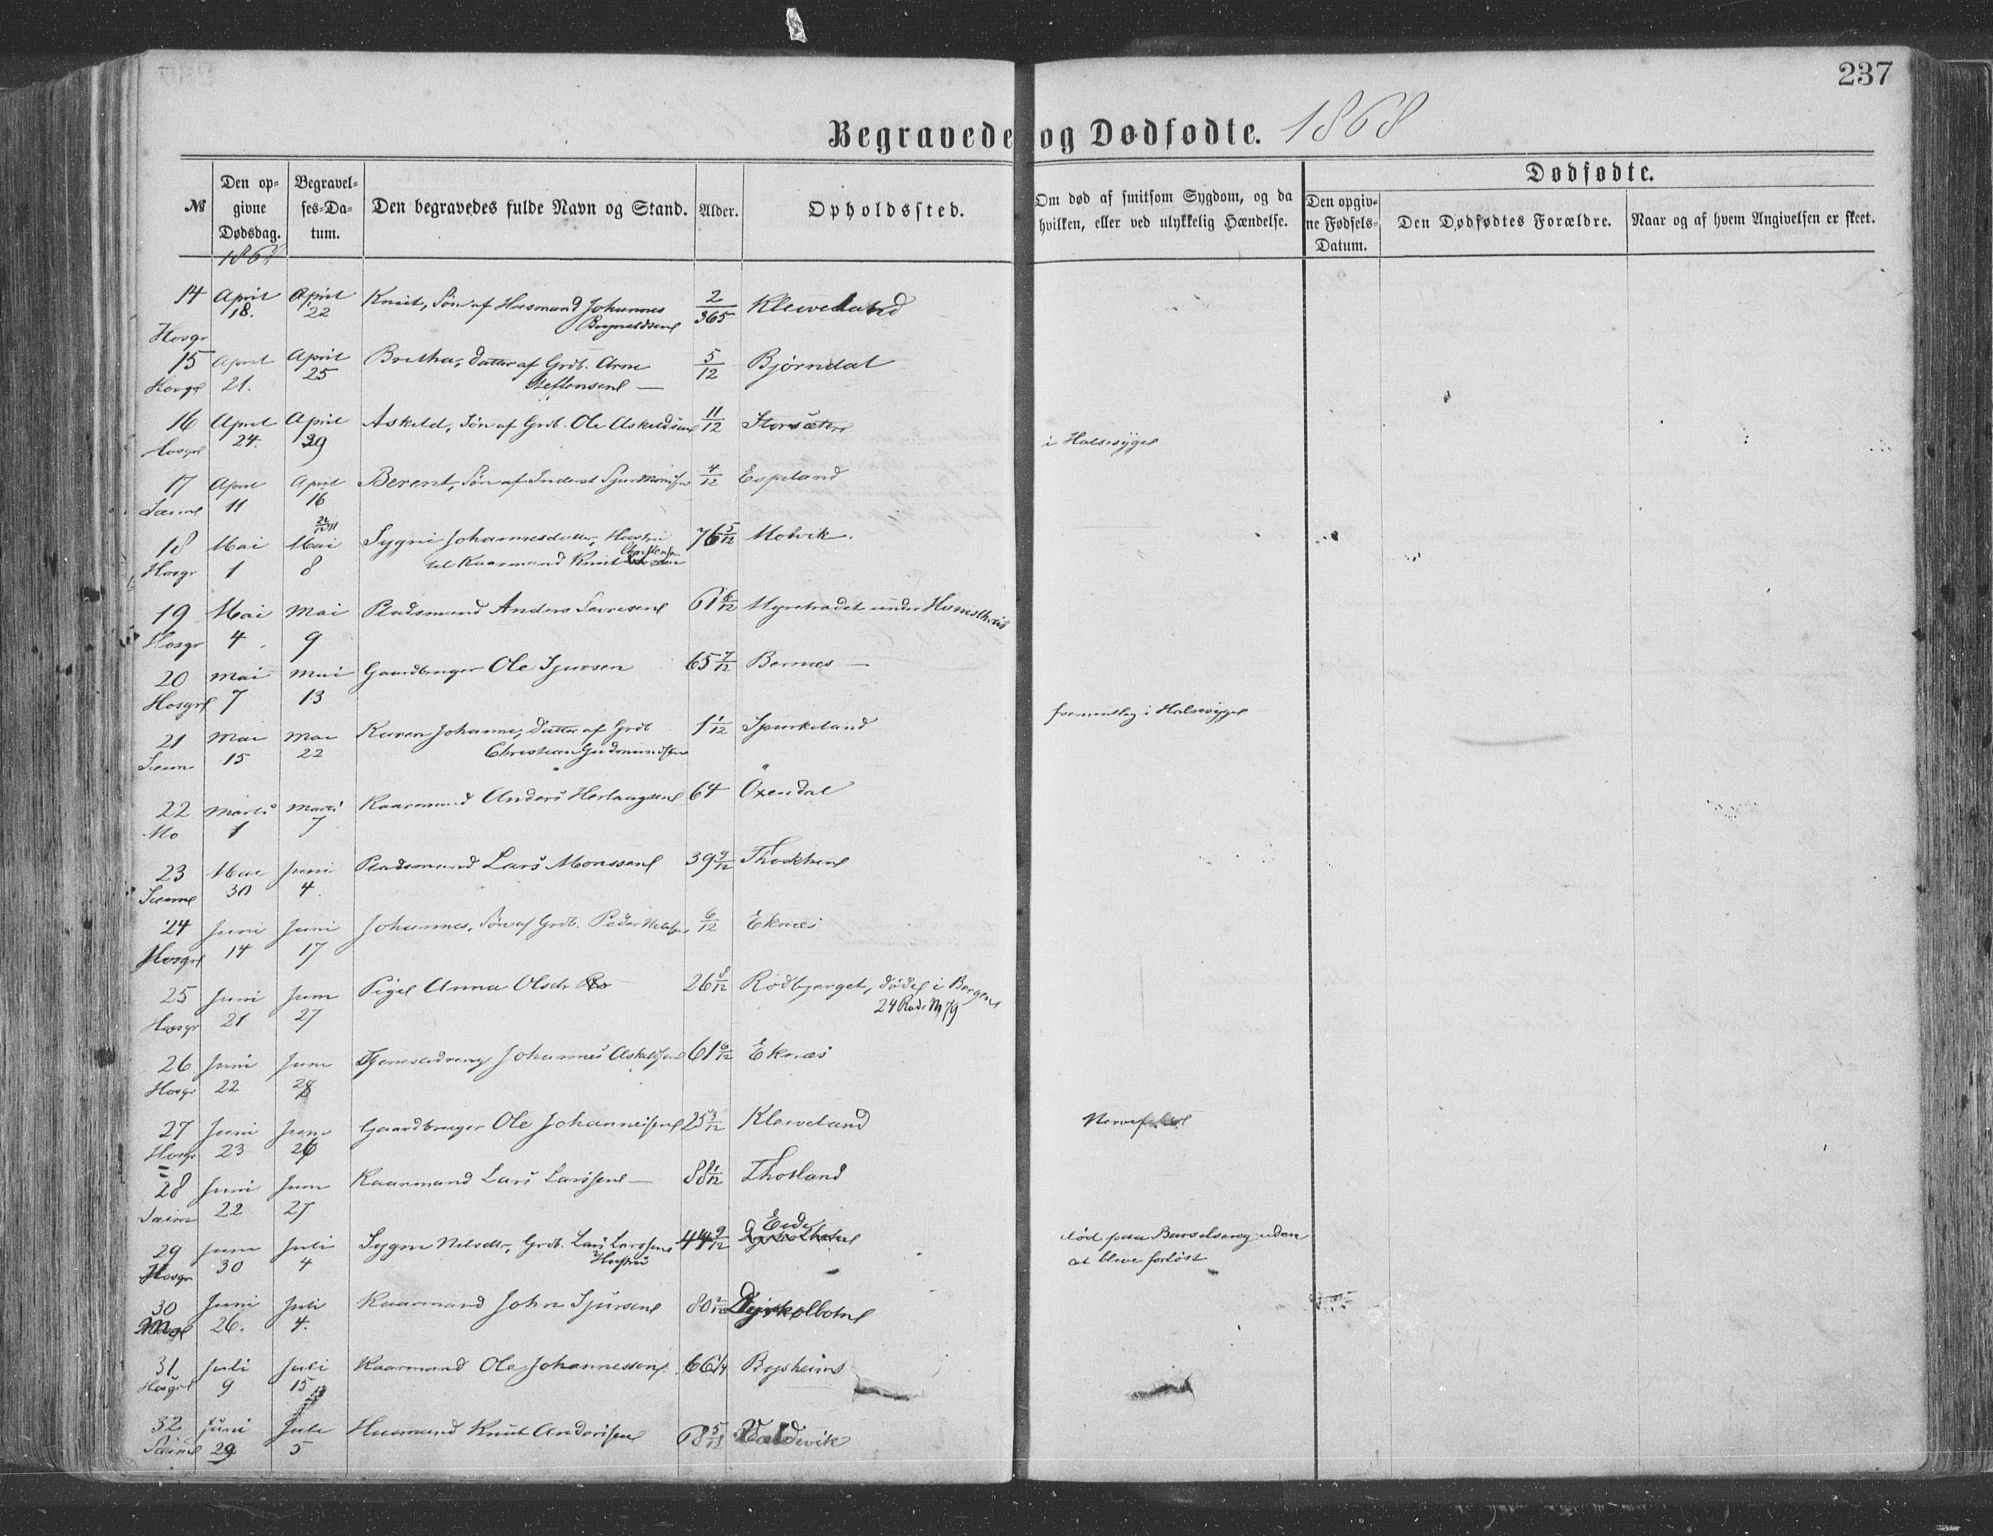 237
Begravede og Dødfødte. 1868
№
Den op-
givne
Dødsdag.
Begravel-
ses-Da-
tum.
Den begravedes fulde Navn og Stand.
Alder.
Opholdssted.
Om død af smitsom Sygdom, og da
hvilken, eller ved ulykkelig Hændelse.
Dødfødte.
Den opgiv-
ne Fødsels-
Datum.
Den Dødfødtes Forældre.
Naar og af hvem Angivelsen er skeet.
1868
14 April April Knut, Søn af Husmand Johannes 2/365 Kleiveland
18. 22 Brynildsen
Hosgr
15 April April Bretha, Datter af Grdb. Arne 5/12 Bjørndal
Hosgr 21. 25 Steffensen —
16 April April Askeld, Søn af Grdb. Ole Askeldsen 11/12 Storsæter i Halssyge
Hosgr 24. 29
17 April April Berent, Søn af Inderst Sjur Monsen 4/12 Espeland
Sæim 11 16
18 Mai Mai Sygni Johannesdatter, Hustru 76 5/12 Molvik.
Hosgr 1 8 til Kaarmand Knut Christensen
19 Mai Mai Pladsmand Anders Iversen 61 6/12 Myretrædet under
Hosgr 4 9
20 Mai Mai Gaardbruger Ole Sjursen 65 7/12 Bernæs —
Hosgr 7 13
21 Mai Mai Karen Johanne, Datter af Grdb 1 1/12 Spurkeland formentlig i Halssyge
Sæim 15 22 Christian Gudmundsen
22 Marts Marts Kaarmand Anders Herlaugsen 64 Öxendal
Mo 1 7
23 Mai Juni Pladsmand Lars Monssen 39 9/12
Sæim 30 4.
24 Juni Juni Johannes, Søn af Grdb. Peder Nilsen 6/12 Eknæs
Hosgr 14 17
25 Juni Juni Pige Anna Olsdr 26 8/12 Rødbjerget, død i Bergen
Hosgr 21 27 24 Rode № 79
26 Juni Juni Tjenestedreng Johannes Askeldsen 61 6/12 Eknæs
Hosgr 22 28
27 Juni Juni Gaardbruger Ole Johannessen 25 3/12 Kleiveland Nervefeber
Hosgr 23 26
28 Juni Juni Kaarmand Lars Larsen — 88 1/12 Thotland
Sæim 22 27
29 Juni Juli Sygni Nelsdtr, Grdb. Lars Larssens 44 9/12 Eide død paa Barselseng uden
Hosgr 30 4 Hustru at bleve forløst
30 Juni Juli Kaarmand John Sjursen 80 2/12 Dyrkolbotn
26. 4.
31 Juli Juli Kaarmand Ole Johannessen. 66 1/4 Bysheim
Hosgr 9 15
32 Juni Juli Husmand Knut Andersen 68 5/12 Valdevik
Sæim 29 5